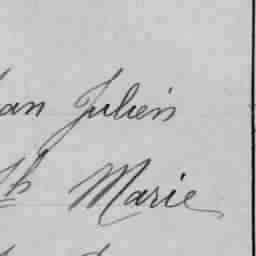 an Julien
th Marie